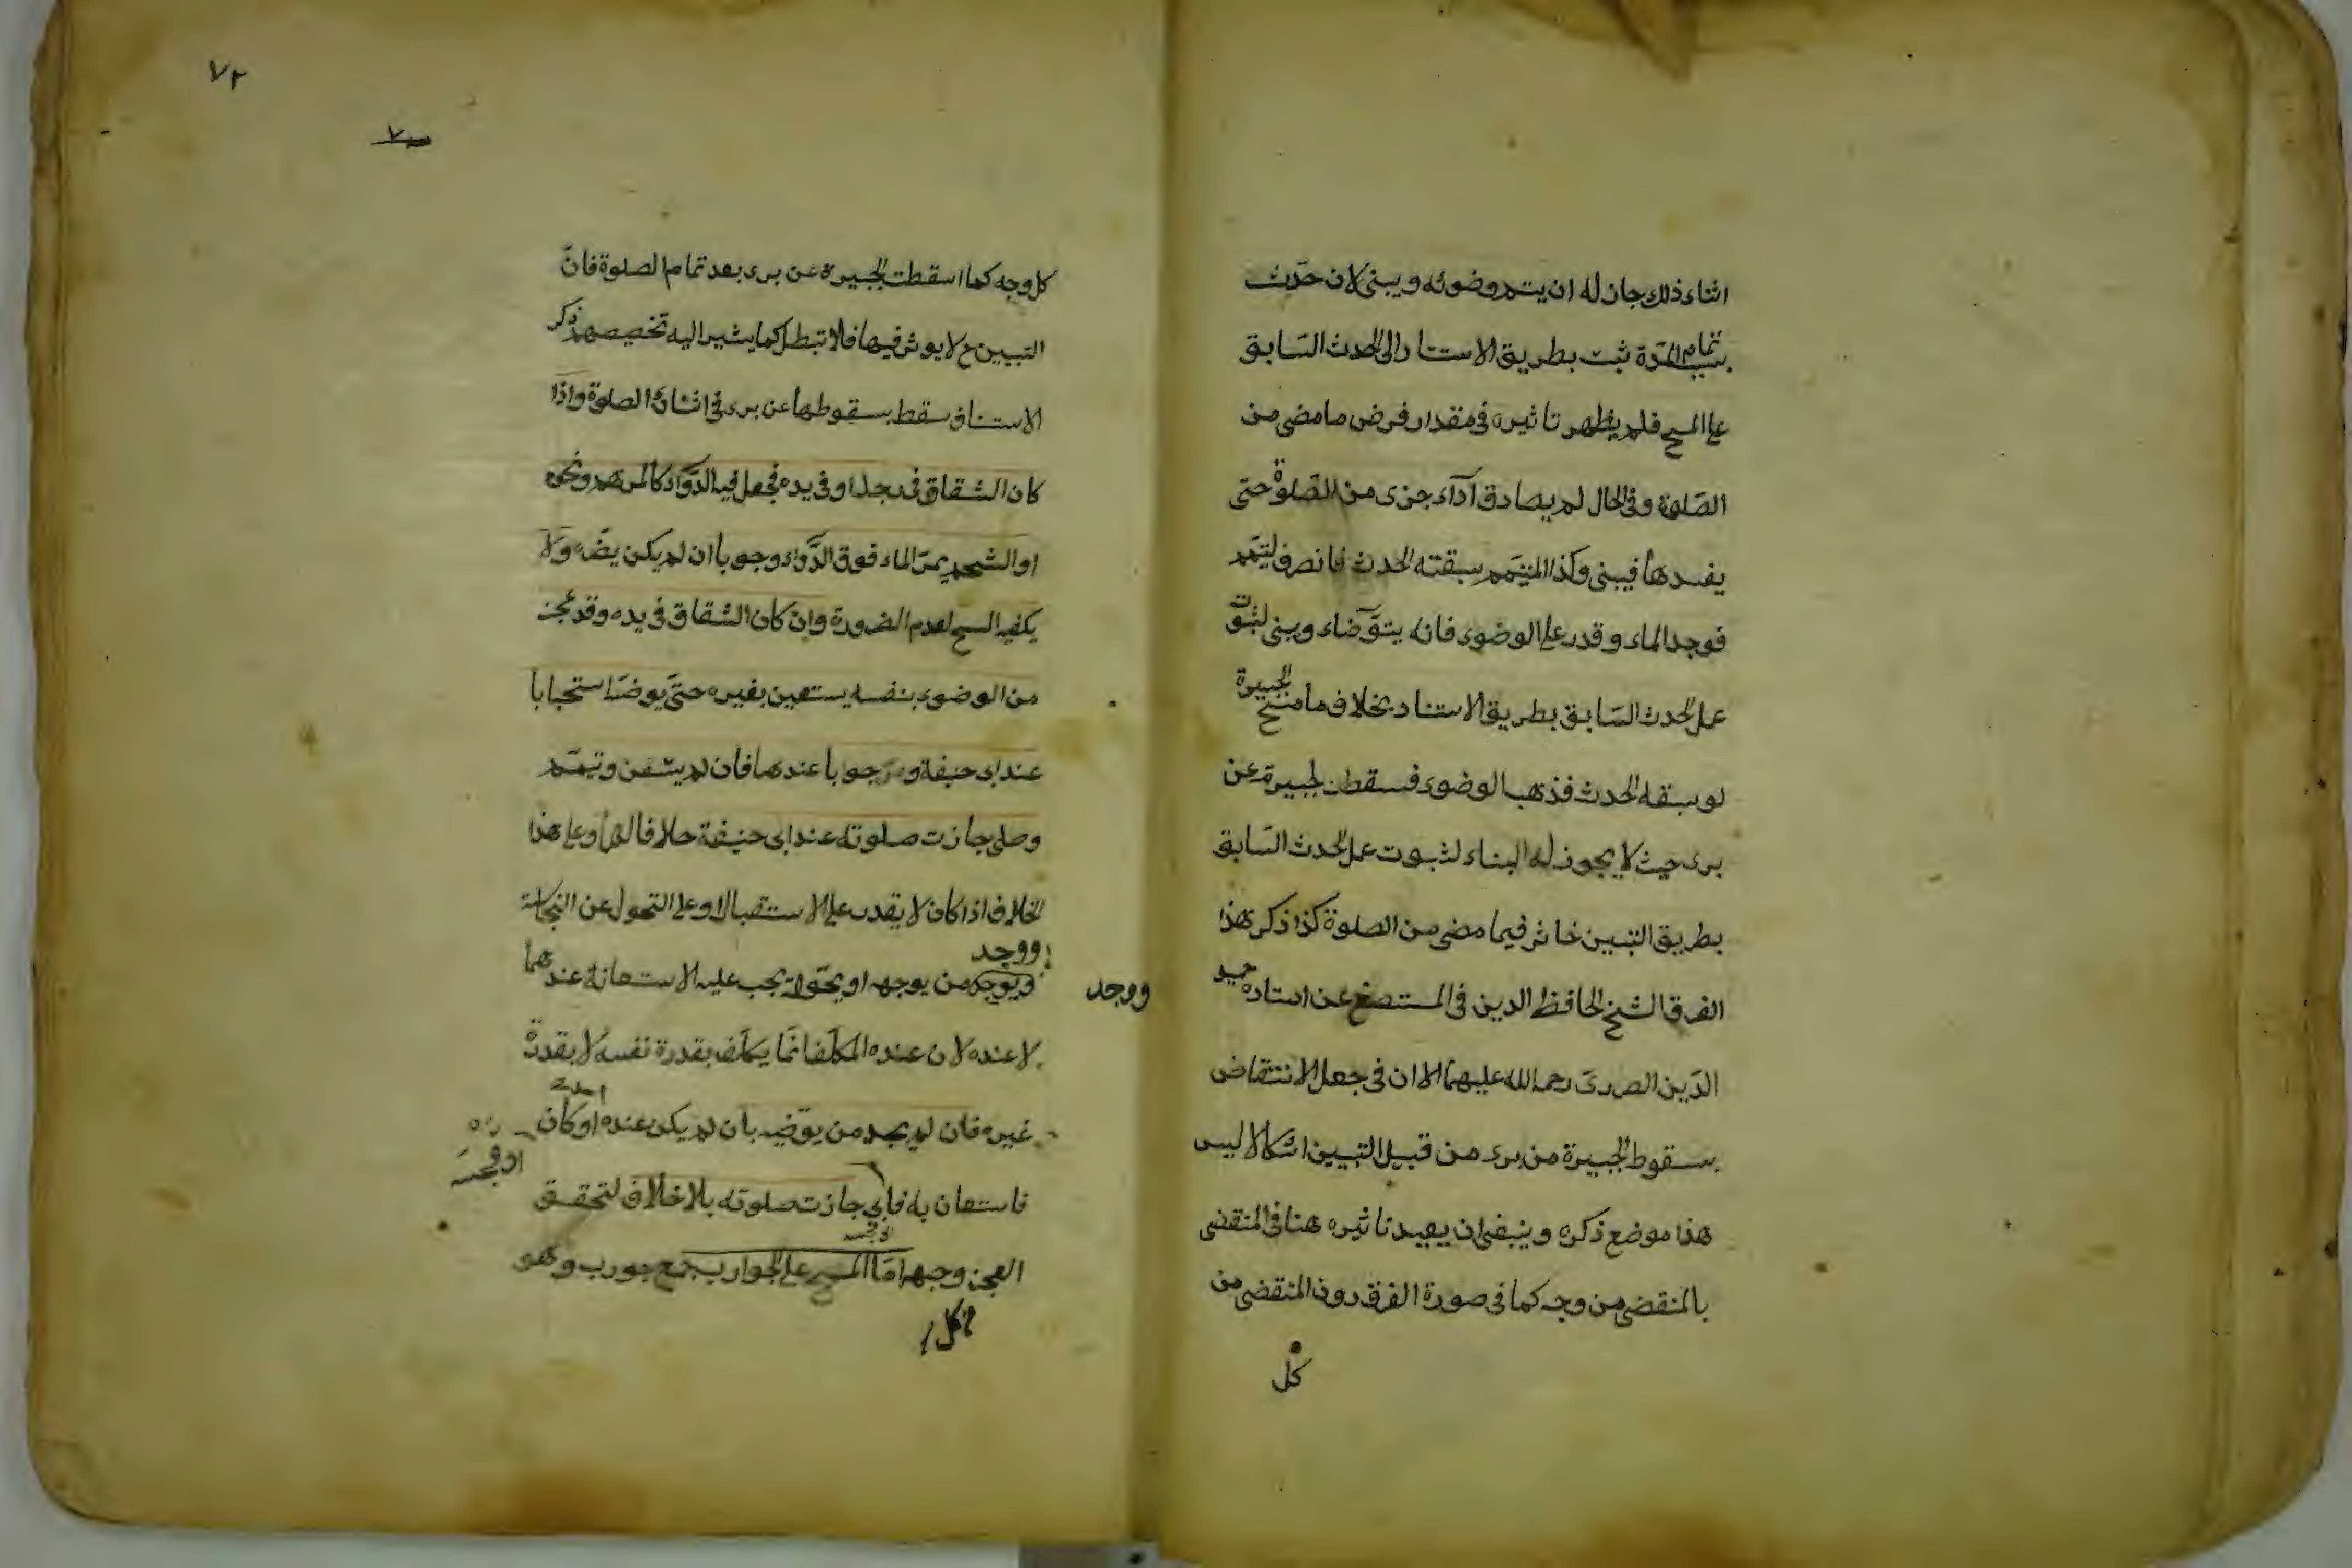 اثناء ذلك جاز له ان يتم وضوئه ويبنى لان حدث
بسبب تمام المدة ثبت بطريق الاستناد الى الحدث السّابق
على المسح فلم يظهر تاثيره فى مقدار فرض ما مضى من
الصّلوة وفى الحال لم يصادق اداء جزء من الصّلوة حتى
يفسدها فيبنى وكذا المتيمم سبقته الحدث فانصرف ليتمم
فوجد الماء وقدر على الوضوء فانه يتوضاء ويبنى لثبوت
عمل الحدث السّابق بطريق الاستناد بخلاف ماسح الجبيرة
لو سبقه الحدث فذهب الوضوء فسقطت الجبيرة عن
برء حيث لا يجوز له البناء لثبوت عمل الحدث السّابق
بطريق التبيين فاثر فيما مضى من الصلوة كذا ذكر هذا
الفرق الشيخ الحافظ الدين فى المستصفى عن استاده حميد
الدّين الضرير رحمه الله عليهما الا ان فى جعل الانتقاض
بسقوط الجبيرة من برء من قبيل التبيين اشكالا ليس
هذا موضع ذكره وينبغى ان يعيد تاثيره هنا فى المنقضى
بالمنقضى من وجه كما فى صورة الفرق دون المنقضى من
كل
٧٢
٧٠
كل وجه كما اسقطت الجبيرة عن برء بعد تمام الصلوة فانّ
التبيين ح لا يوثر فيها فلا تبطل كما يشير اليه تخصيصهم ذكر
الاستناف سقط بسقوطها عن برء فى اثناء الصلوة واذا
كان الشقاق فى رجله او فى يده فجعل فيه الدّواء كالمرهم ونحوه
او الشحم يمرّ الماء فوق الدّواء وجوبا ان لم يكن يضّره ولا
يكفيه المسح لعدم الضرورة وان كان الشقاق فى يده وقد عجز
من الوضوء بنفسه يستعين بغيره حتىّ يوضئا استحبابا
عند ابى حنيفة ووجوبا عندهما فان لم يستعن وتيمّم
وصلى جازت صلوته عند ابى حنيفة خلافا لهما وعلى هذا
الخلاف اذا كان لا يقدر على الاستقبال او على التحول عن النجاسة
ووجد
ويوجد من يوجهه او يحّوله يجب عليه الاستعانة عندهما
ووجد
لا عنده لان عنده المكلّف انمّا يكلّف بقدرة نفسه لا بقدرة
احد
غيره فان لم يجد من يوّضيه بان لم يكن عنده او كان
فاستعان به فابى جازت صلوته بلا خلاف لتحقق
العجز وجبه امّا المسح على الجوارب جمع جورب وهو